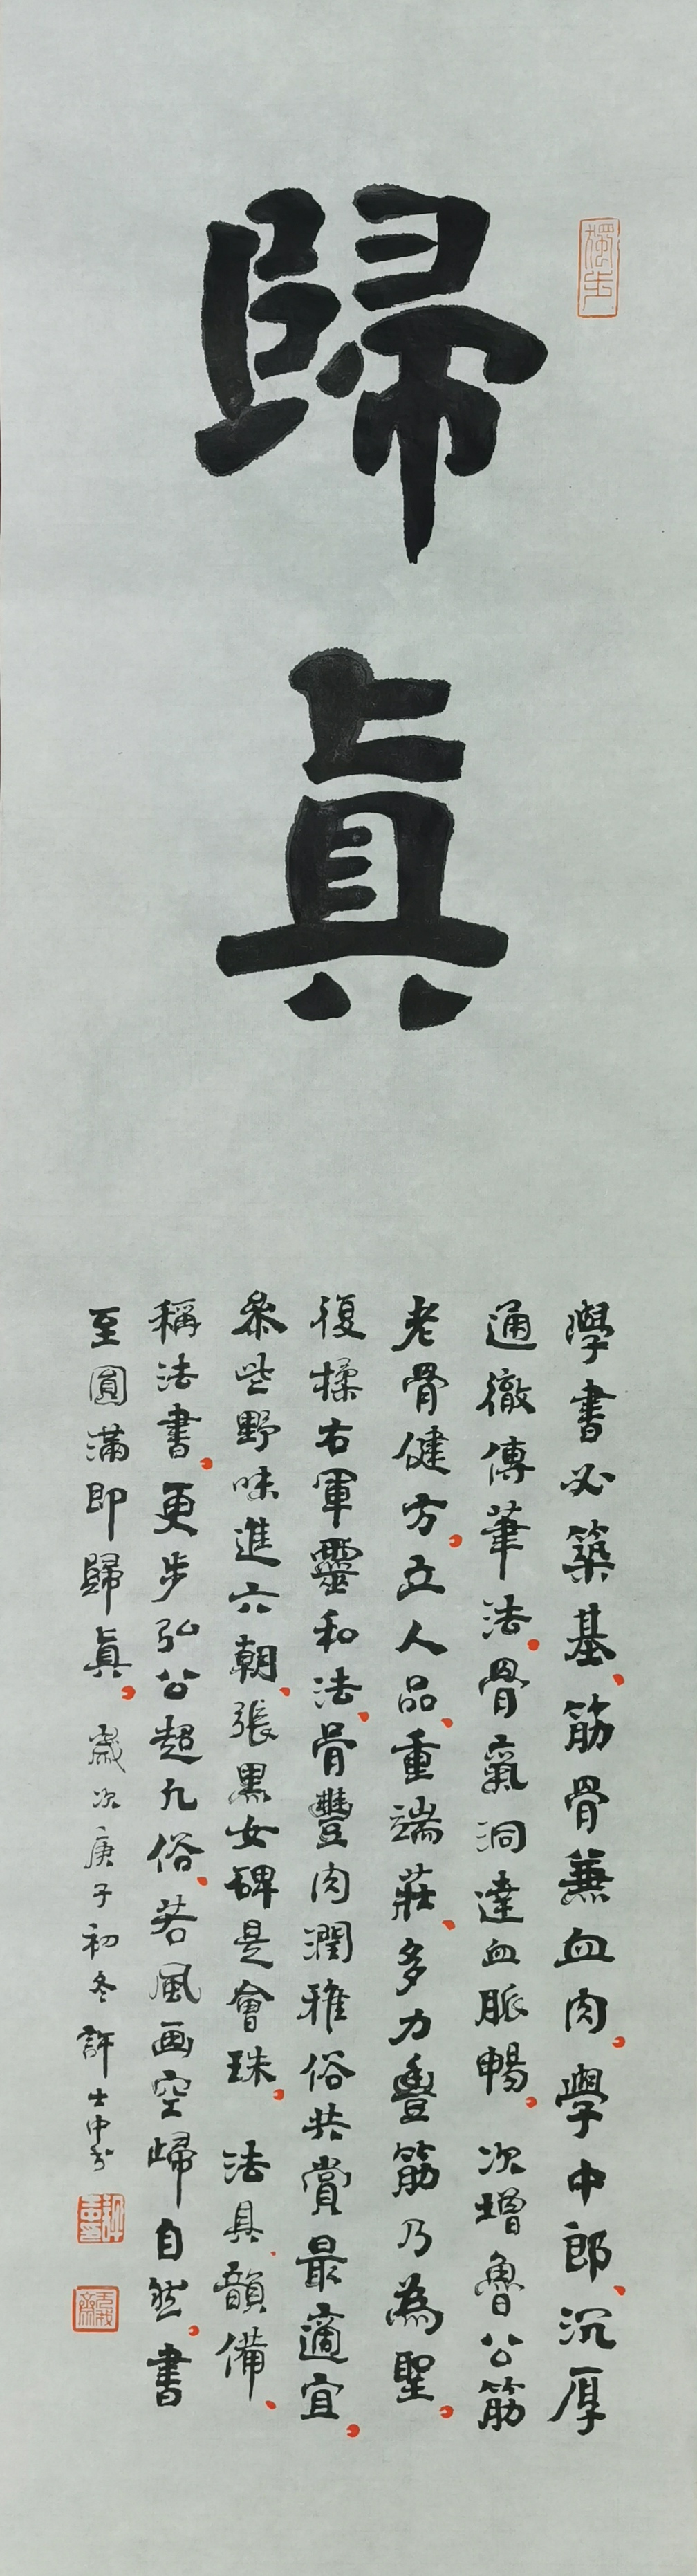 歸真
獨步
學書必築基、筋骨兼血肉。學中郎、沉厚
通徹傳筆法。骨氣洞達血脈暢。次增魯公筋
老骨健方。立人品、重端莊、多力豊筋乃為聖。
復揉右軍靈和法、骨豐肉潤雅俗共賞最適宜。
叅些野味進六朝、張黑女碑是會珠。法具、韻備、
稱法書。更步弘公超凡俗、若風画空歸自然。書
至圓滿即歸真。歲次庚子初冬許士中書